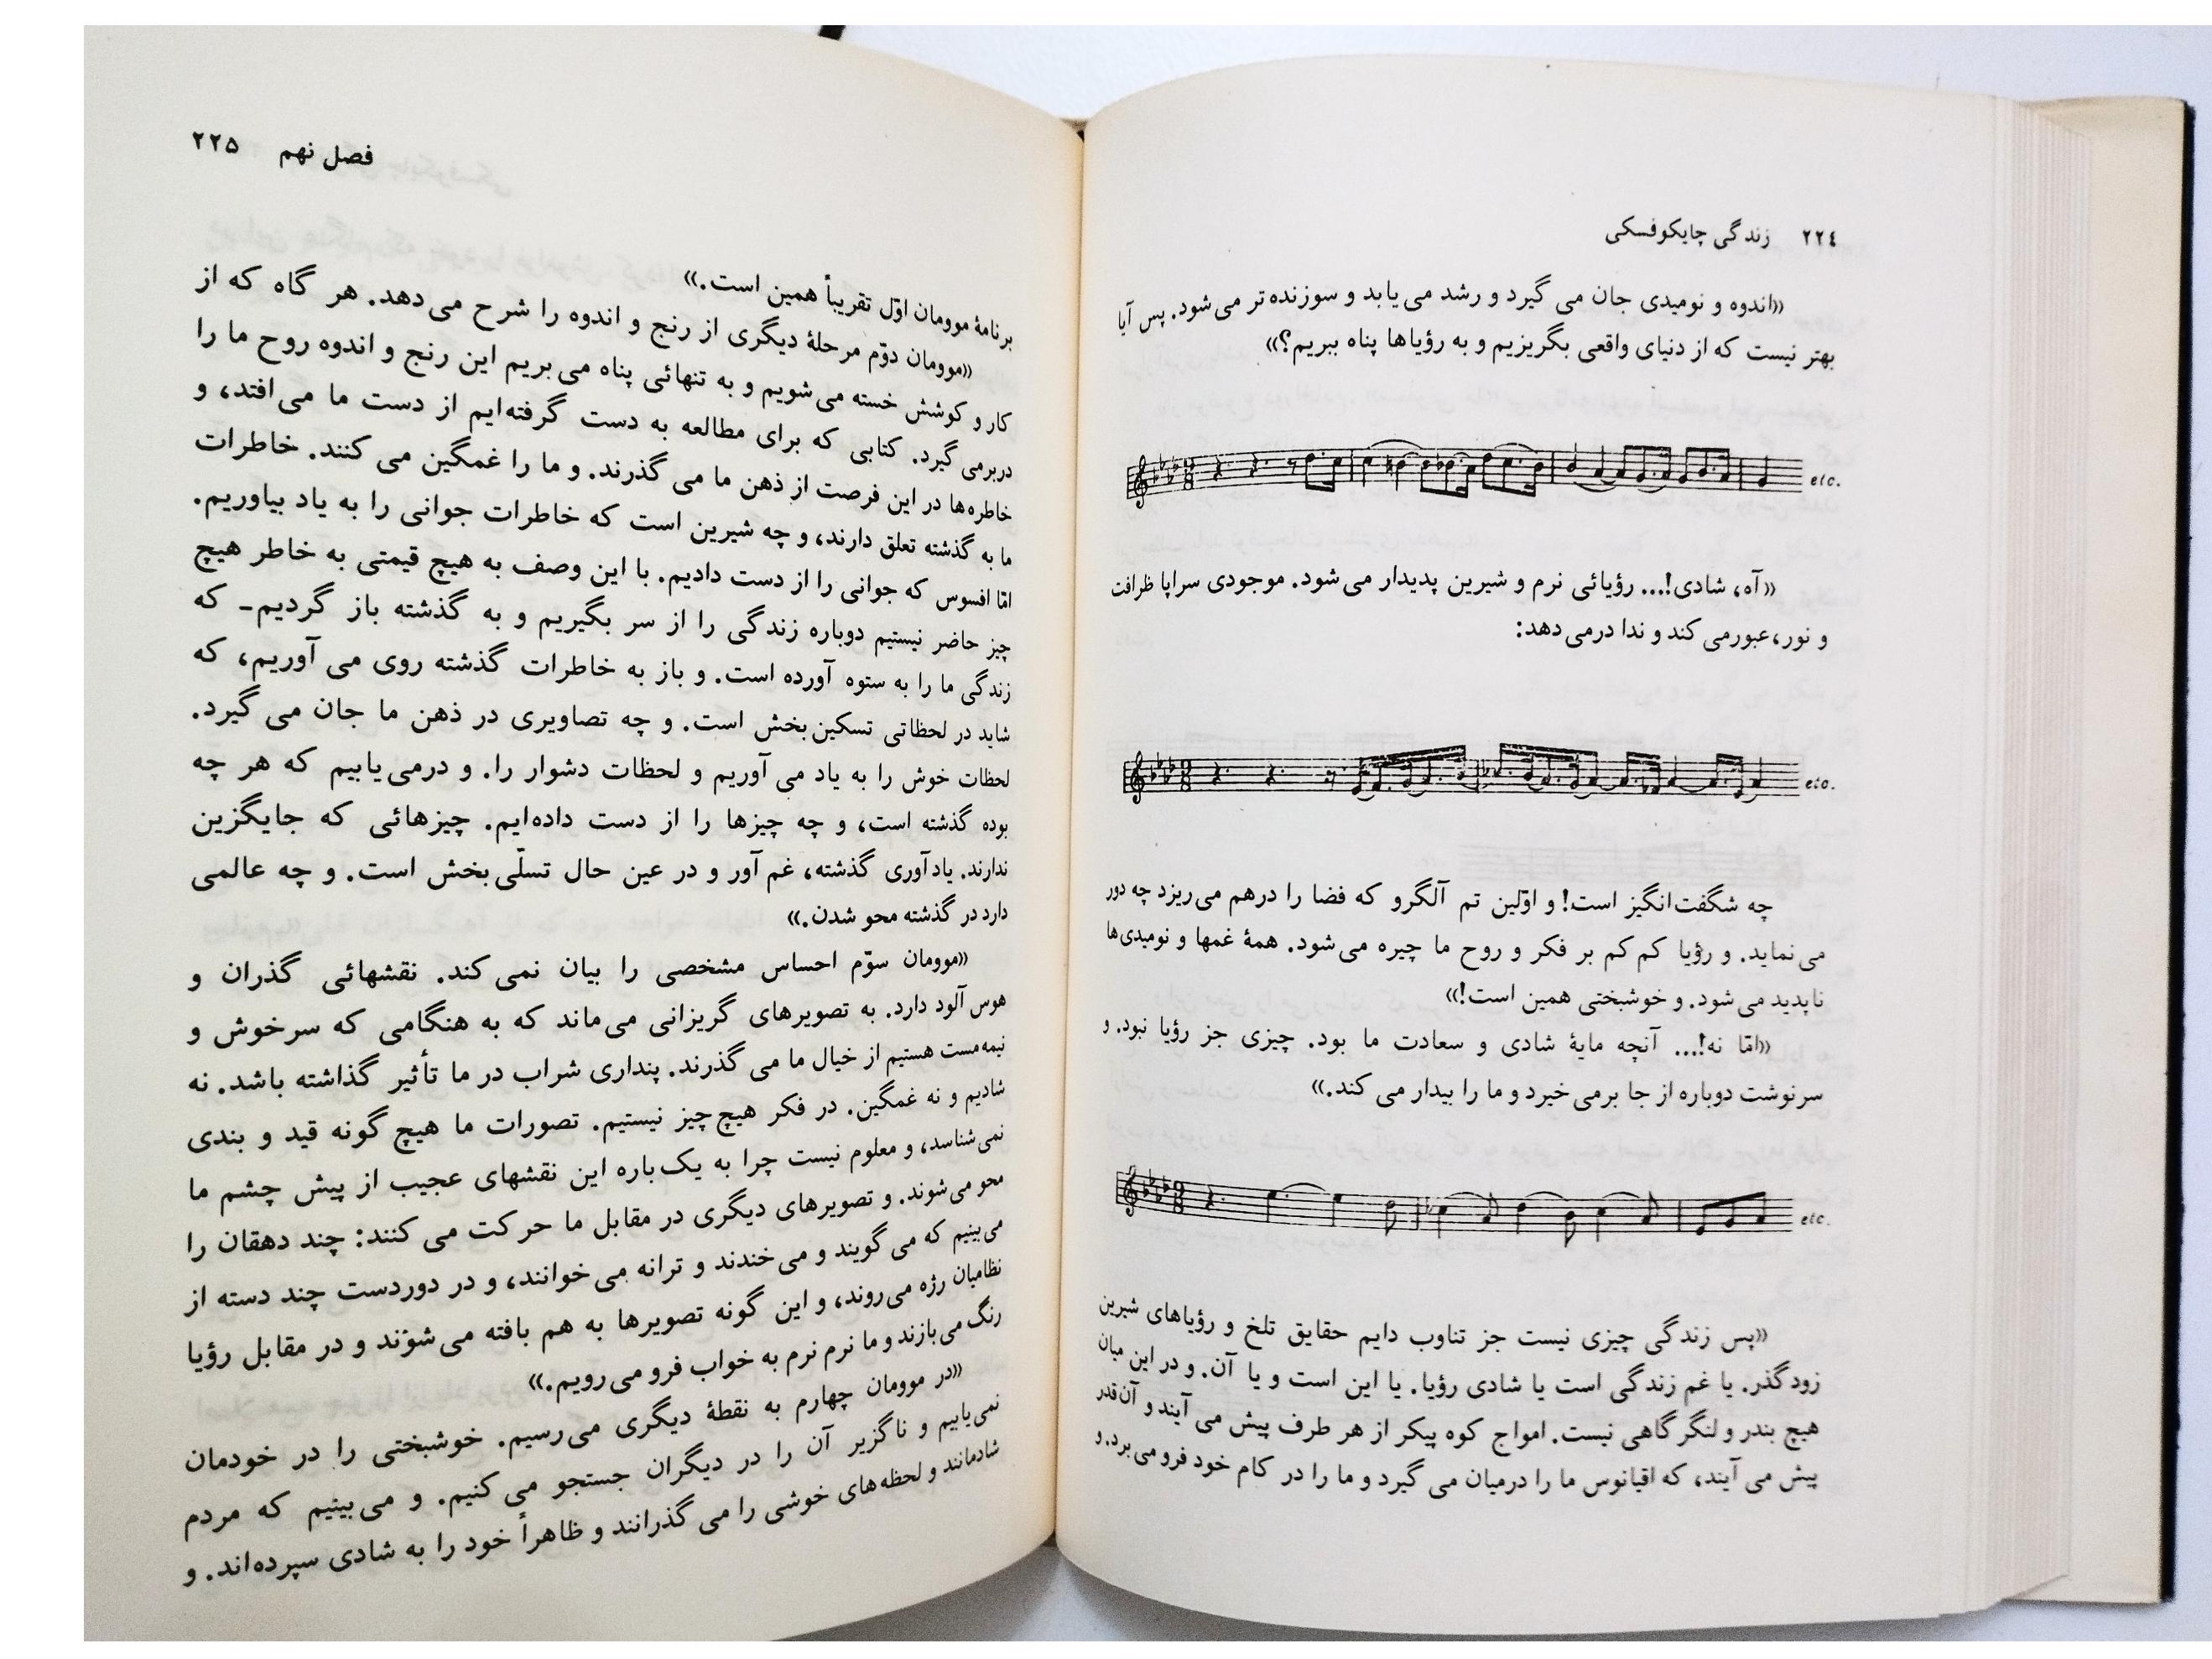 ۲۲٤ زندگی چایکوفسکی
«اندوه و نومیدی جان می گیرد و رشد می یابد و سوزنده تر می شود. پس آیا
بهتر نیست که از دنیای واقعی بگریزیم و به رؤیاها پناه ببریم؟»
etc.
«آه، شادی!... رؤیائی نرم و شیرین پدیدار می شود. موجودی سراپا ظرافت
و نور، عبورمی کند و ندا درمی دهد:
etc.
چه شگفت انگیز است! و اوّلین تم آلگرو که فضا را درهم می ریزد چه دور
می نماید. و رؤیا کم کم بر فکر و روح ما چیره می شود. همهٔ غمها و نومیدی ها
ناپدید می شود. و خوشبختی همین است!»
«امّا نه!... آنچه مایهٔ شادی و سعادت ما بود. چیزی جز رؤیا نبود. و
سرنوشت دوباره از جا برمی خیرد و ما را بیدار می کند.»
etc.
«پس زندگی چیزی نیست جز تناوب دایم حقایق تلخ و رؤیاهای شیرین
زودگذر. یا غم زندگی است یا شادی رؤیا. یا این است و یا آن. و در این میان
هیچ بندر و لنگرگاهی نیست. امواج کوه پیکر از هر طرف پیش می آیند و آن قدر
پیش می آیند، که اقیانوس ما را درمیان می گیرد و ما را در کام خود فرو می برد. و
فصل نهم ۲۲۵
برنامهٔ موومان اوّل تقریباً همین است.»
«موومان دوّم مرحلهٔ دیگری از رنج و اندوه را شرح می دهد. هر گاه که از
کار و کوشش خسته می شویم و به تنهائی پناه می بریم این رنج و اندوه روح ما را
دربرمی گیرد. کتابی که برای مطالعه به دست گرفته ایم از دست ما می افتد، و
خاطره ها در این فرصت از ذهن ما می گذرند. و ما را غمگین می کنند. خاطرات
ما به گذشته تعلق دارند، و چه شیرین است که خاطرات جوانی را به یاد بیاوریم.
امّا افسوس که جوانی را از دست دادیم. با این وصف به هیچ قیمتی به خاطر هیچ
چیز حاضر نیستیم دوباره زندگی را از سر بگیریم و به گذشته باز گردیم- که
زندگی ما را به ستوه آورده است. و باز به خاطرات گذشته روی می آوریم، که
شاید در لحظاتی تسکین بخش است. و چه تصاویری در ذهن ما جان می گیرد.
لحظات خوش را به یاد می آوریم و لحظات دشوار را. و درمی یابیم که هر چه
بوده گذشته است، و چه چیزها را از دست داده ایم. چیزهائی که جایگزین
ندارند. یادآوری گذشته، غم آور و در عین حال تسلّی بخش است. و چه عالمی
دارد در گذشته محو شدن.»
«موومان سوّم احساس مشخصی را بیان نمی کند. نقشهائی گذران و
هوس آلود دارد. به تصویرهای گریزانی می ماند که به هنگامی که سرخوش و
نیمه مست هستیم از خیال ما می گذرند. پنداری شراب در ما تأثیر گذاشته باشد. نه
شادیم و نه غمگین. در فکر هیچ چیز نیستیم. تصورات ما هیچ گونه قید و بندی
نمی شناسد، و معلوم نیست چرا به یک باره این نقشهای عجیب از پیش چشم ما
محو می شوند. و تصویرهای دیگری در مقابل ما حرکت می کنند: چند دهقان را
می بینیم که می گویند و می خندند و ترانه می خوانند، و در دوردست چند دسته از
نظامیان رژه می روند، و این گونه تصویرها به هم بافته می شوند و در مقابل رؤیا
رنگ می بازند و ما نرم نرم به خواب فرو می رویم.»
«در موومان چهارم به نقطهٔ دیگری می رسیم. خوشبختی را در خودمان
نمی یابیم و ناگزیر آن را در دیگران جستجو می کنیم. و می بینیم که مردم
شادمانند و لحظه های خوشی را می گذرانند و ظاهراً خود را به شادی سپرده اند. و